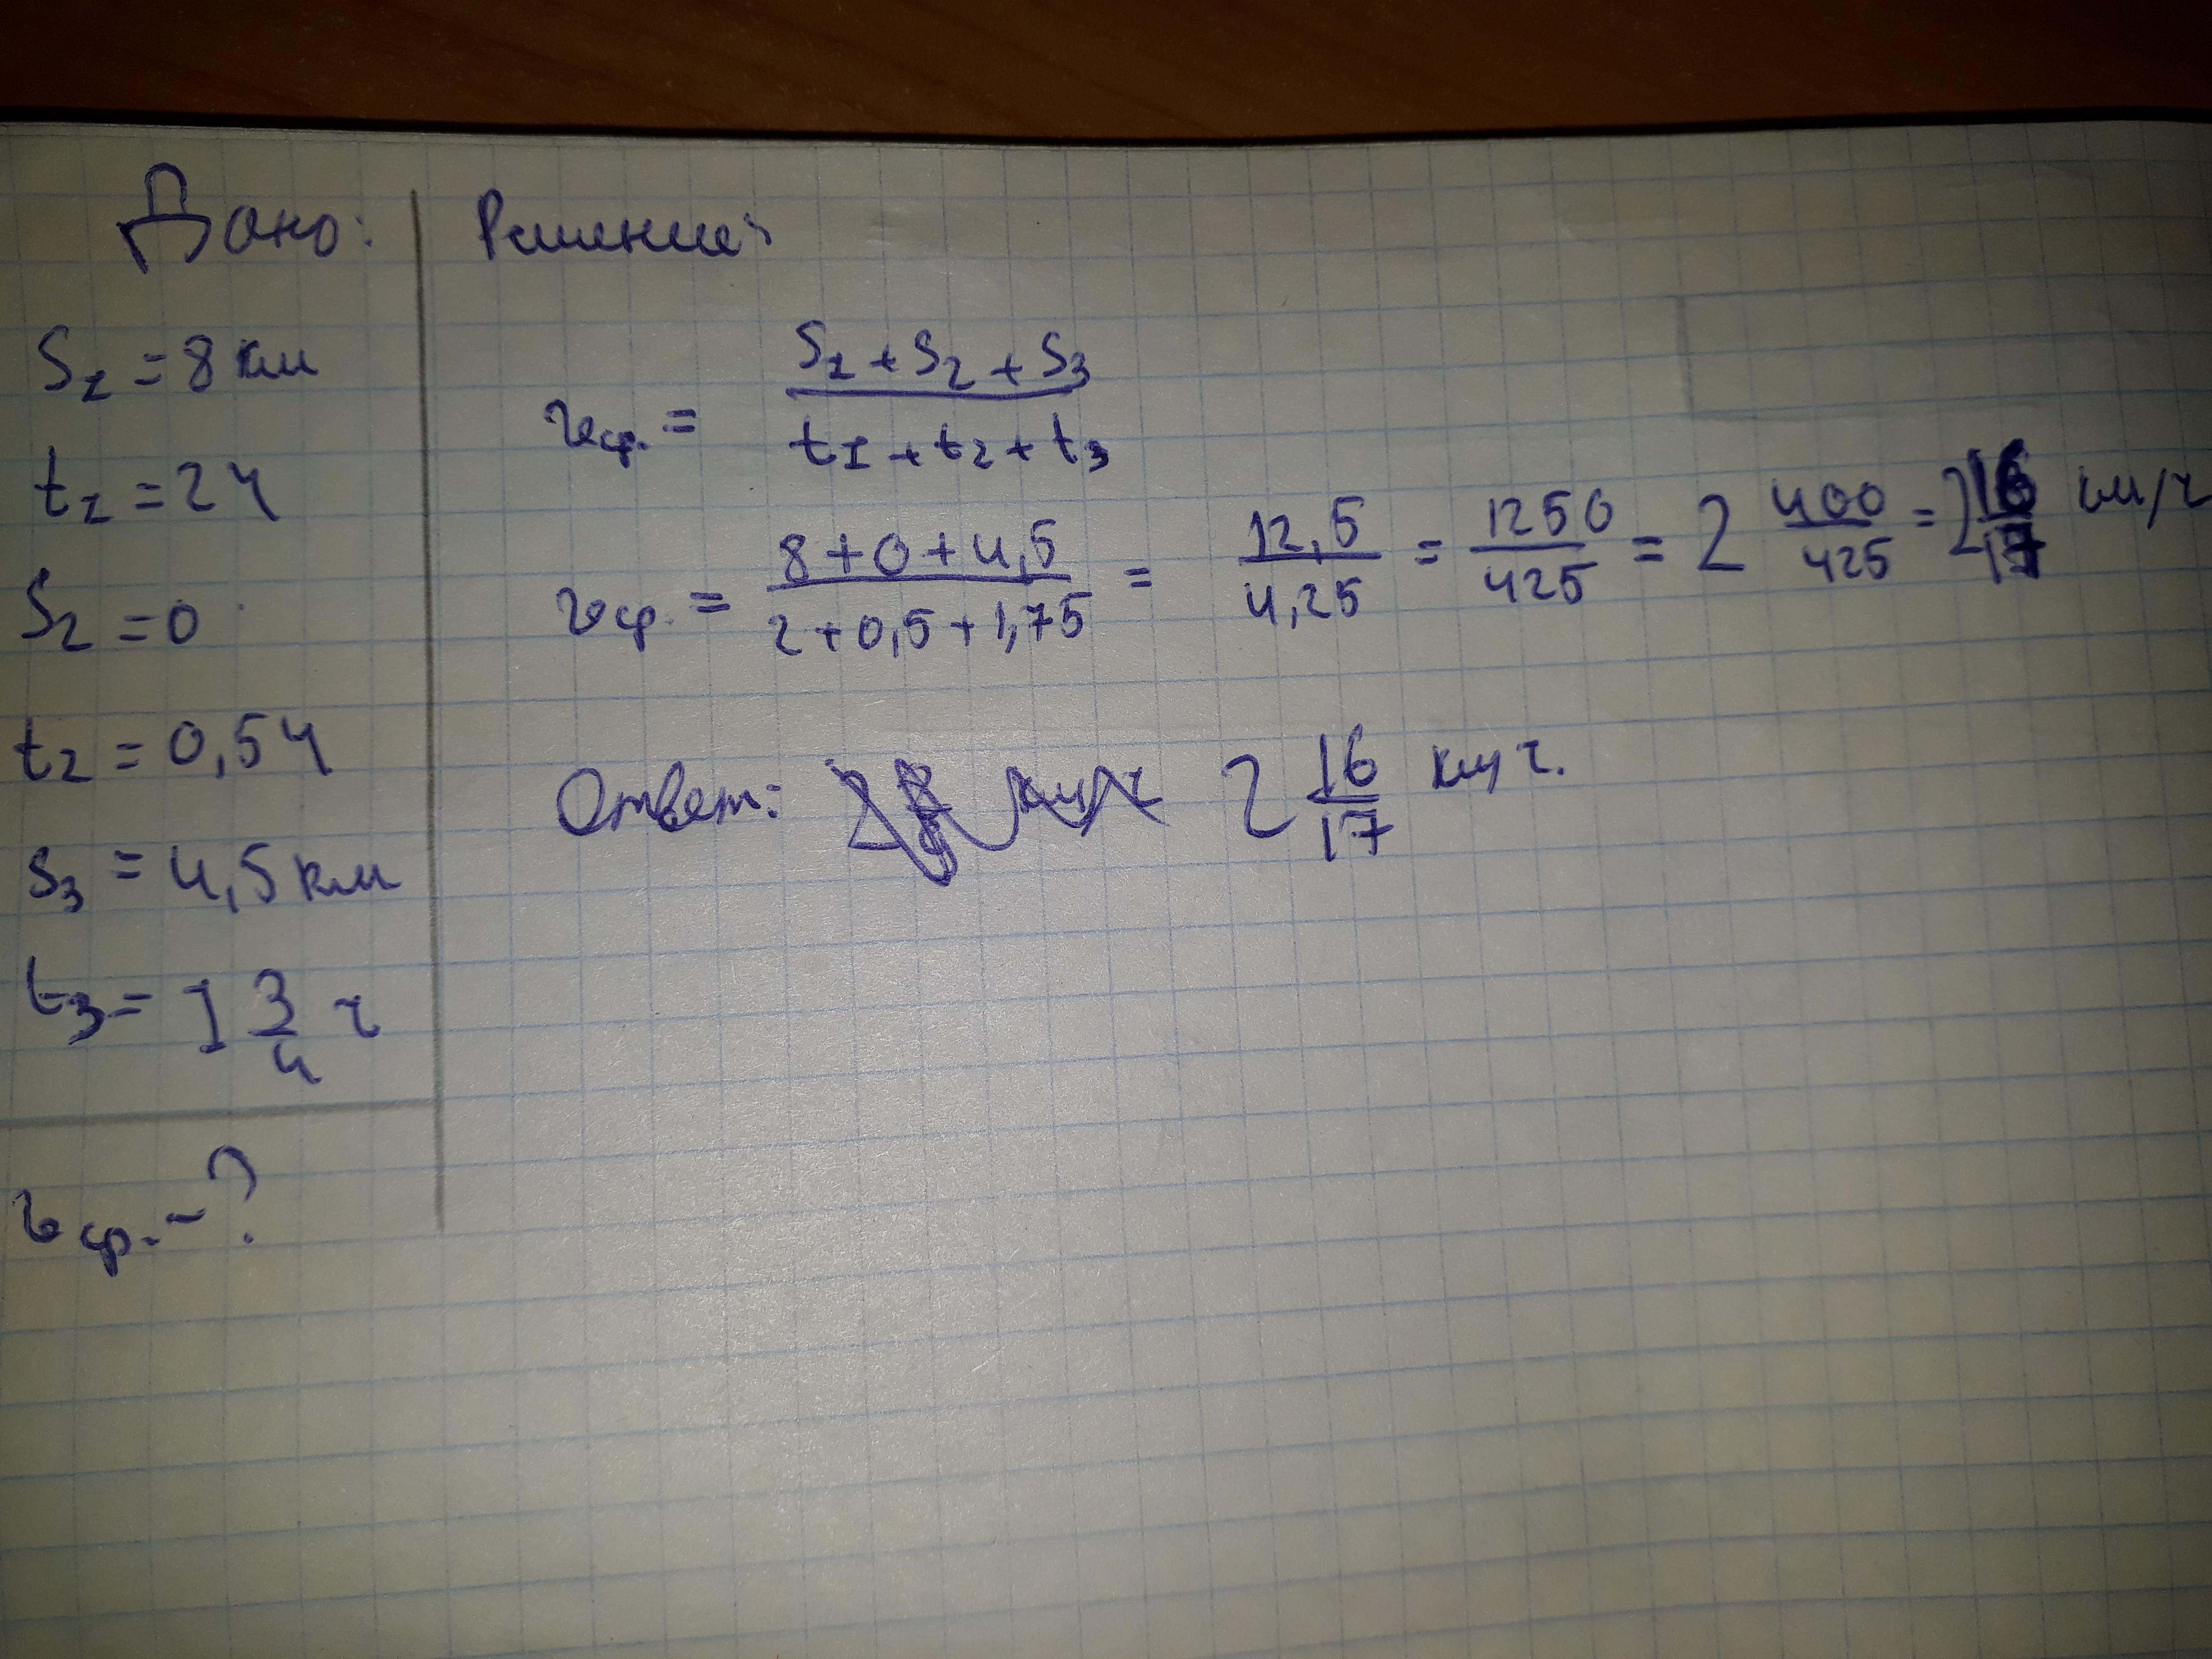 Дано:
S₁ = 8 км
t₁ = 2 ч
S₂ = 0
t₂ = 0,5 ч
S₃ = 4,5 км
t₃ = 1 3/4 ч
v ср. - ?
Решение:
v ср. = (S₁ + S₂ + S₃)/(t₁ + t₂ + t₃)
v ср. = (8 + 0 + 4,5)/(2 + 0,5 + 1,75) = 12,5/4,25 = 1250/425 = 2 400/425 = 2 16/17 км/ч
Ответ: 2 16/17 км/ч.